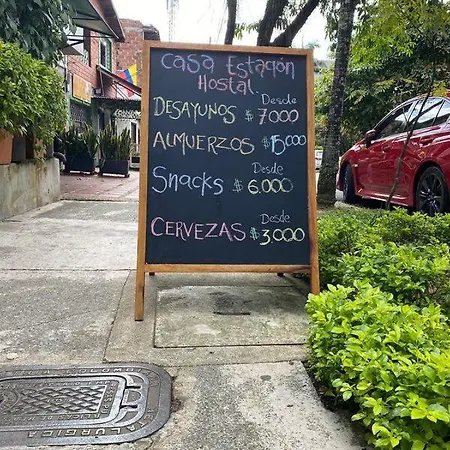 Casa Estación
Hostal.
DESAYUNOS Desde $7000
ALMUERZOS Desde $15.000
Snacks Desde $6.000
CERVEZAS Desde $3.000